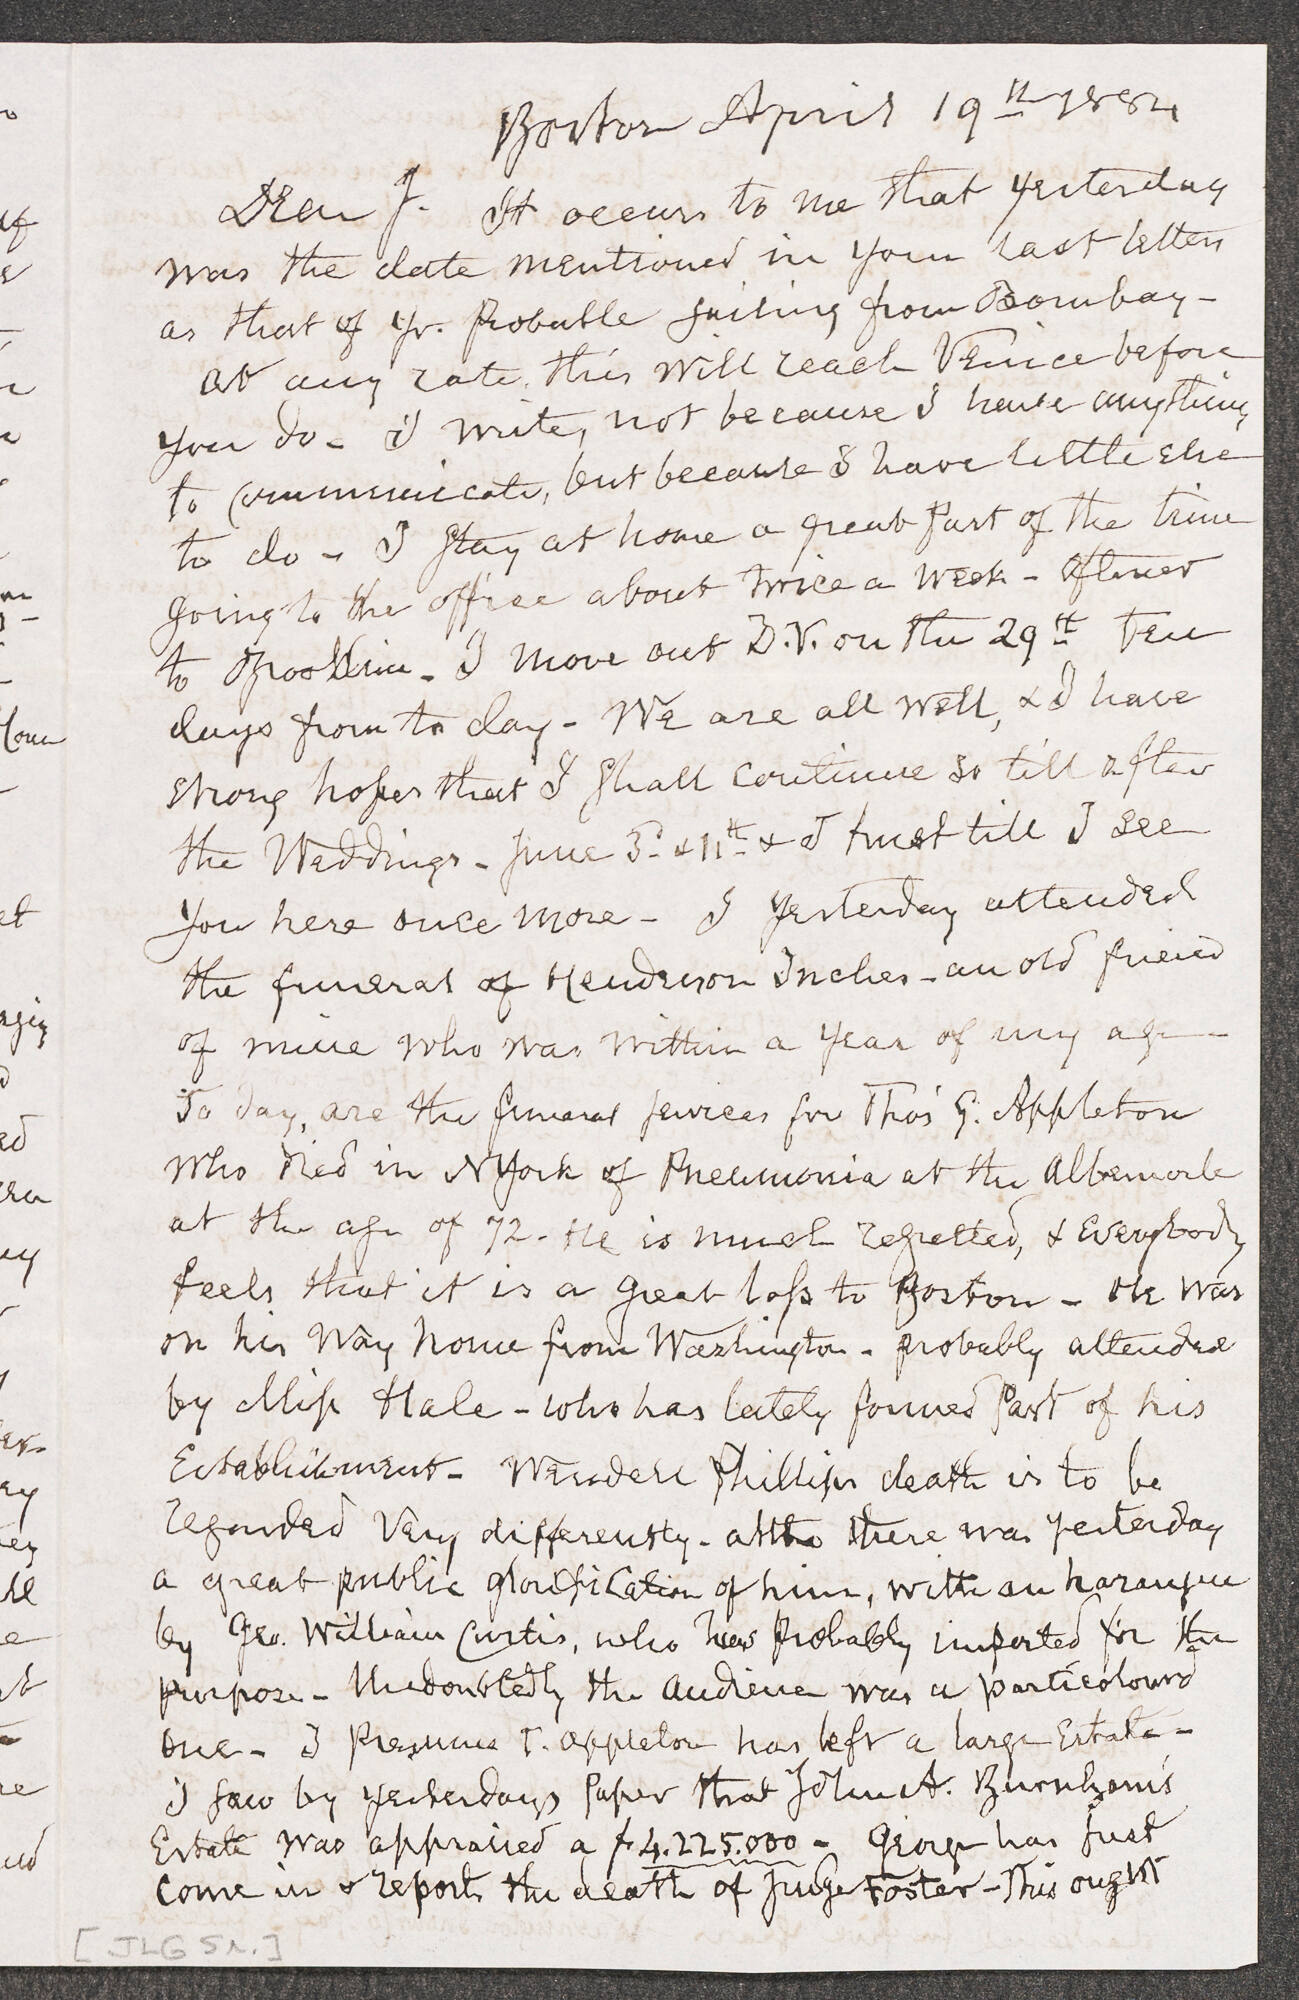 Boston April 19th 1884
Dear J. It occurs to me that yesterday
was the date mentioned in your last letter
as that of yr. probable sailing from Bombay -
at any rate, this will reach Venice before
you do - I write, not because I have anything
to communicate, but because I have little else
to do - I stay at home a great part of the time
going to the office about twice a week - oftener
to Brookline - I move out D.V. on the 29th ten
days from to day - We are all well, & I have
strong hopes that I shall continue so till after
the Weddings - June 3d & 11th & I trust till I see
you here once more - I yesterday attended
the funeral of Henderson Inches - an old friend
of mine who was within a year of my age -
To day, are the funeral services for Thos G. Appleton
who died in N York of Pneumonia at the Albemarle
at the age of 72 - He is much regretted, & Everybody
feels that it is a great loss to Boston - He was
on his way home from Washington - probably attended
by Miss Hale - who has lately formed part of his
Establishment - Wendell Phillips death is to be
regarded very differently - altho there was yesterday
a great public glorification of him, with an harangue
by Geo. William Curtis, who was probably imported for the
purpose - Undoubtedly the audience was a particolourd
one - I presume T. Appleton has left a large Estate -
I saw by yesterdays paper that John A. Burnham's
Estate was appraised a $4.225.000 - George has just
come in & reports the death of Judge Foster - This ought
[JLG Sr.]